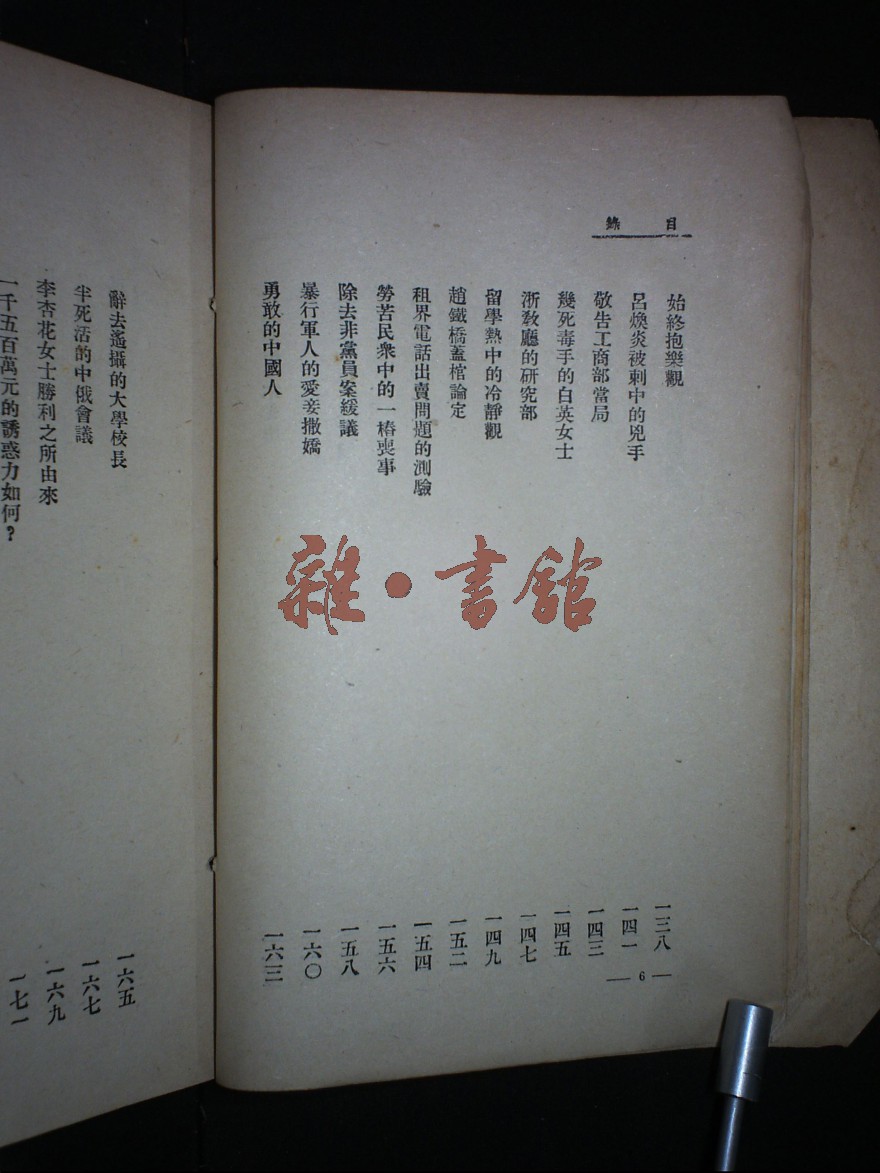 目錄
始終抱樂觀 一三八
呂煥炎被刺中的兇手 一四一
敬告工商部當局 一四三
幾死毒手的白英女士 一四五
浙敎廳的研究部 一四七
留學熱中的冷靜觀 一四九
趙鐵橋蓋棺論定 一五二
租界電話出賣問題的測驗 一五四
勞苦民衆中的一樁喪事 一五六
除去非黨員案緩議 一五八
暴行軍人的愛妾撒嬌 一六〇
勇敢的中國人 一六三
— 6 —
辭去遙攝的大學校長 一六五
半死活的中俄會議 一六七
李杏花女士勝利之所由來 一六九
一千五百萬元的誘惑力如何？ 一七一
雜·書館